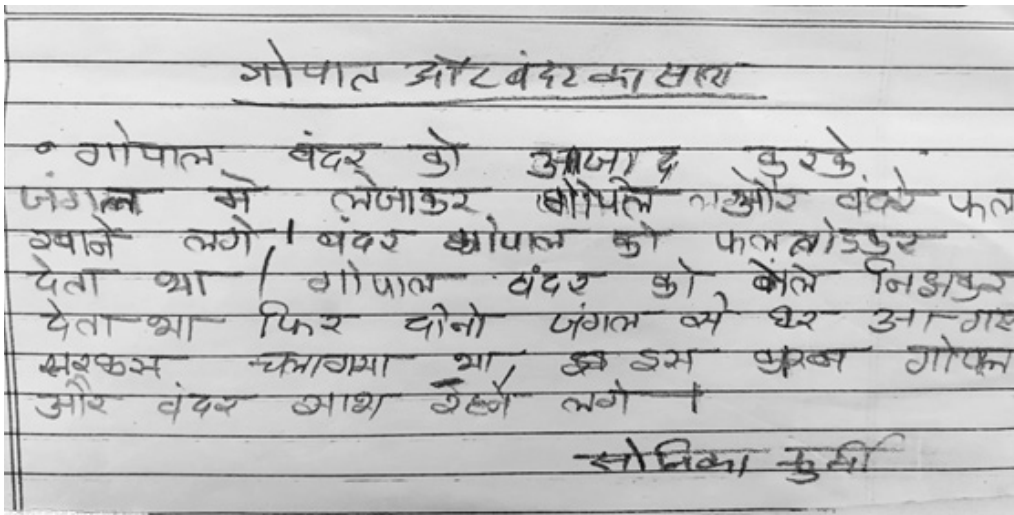 गोपाल और बंदर का साथ
गोपाल बंदर को आजाद करके
जंगल मे लेजाकर गोपाल और बंदर फल
खाने लगे। बंदर गोपाल को फल तोडकर
देता था। गोपाल बंदर को केले
देता था फिर दोनो जंगल से घर आ गए
सरकस चलागया था इस गोपाल
और बंदर साथ रहने लगे।
कुर्मी